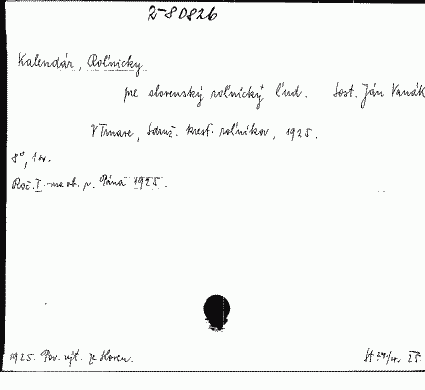 2-80826
Kalendár, Roľnícky
pre slovenský roľnícky ľud. Sost. Ján Vanák
V Trnave, Sdruž. kresť. roľníkov, 1925.
8°, 1 sv.
Roč. I. na ob. r. Pána 1925.
1925. Pov. výt. ze Sloven.